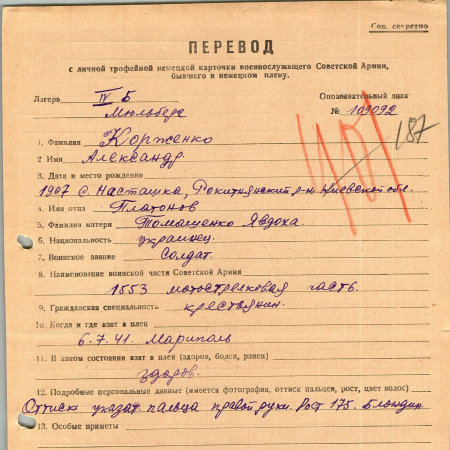 Сов. секретно
ПЕРЕВОД
с личной трофейной немецкой карточки военнослужащего Советской Армии,
бывшего в немецком плену.
Лагерь IV Б Опознавательный знак
Мюльберг № 109092
187
1. Фамилия Корженко
2 Имя Александр.
3. Дата и место рождения
1907 с. Насташка, Рокитнянский р-н Киевской обл.
4. Имя отца Платонов
5. Фамилия матери Томашенко Явдоха.
6. Национальность украинец.
7. Воинское звание Солдат.
8. Наименование воинской части Советской Армии
1553 мотострелковая часть.
9. Гражданская специальность крестьянин.
10. Когда и где взят в плен
6.7.41. Мариполь
11. В каком состоянии взят в плен (здоров, болен, ранен)
здоров.
12. Подробные персональные данные (имеется фотография, оттиск пальцев, рост, цвет волос)
Оттиск указат. пальца правой руки. Рост 175. Блондин
13. Особые приметы